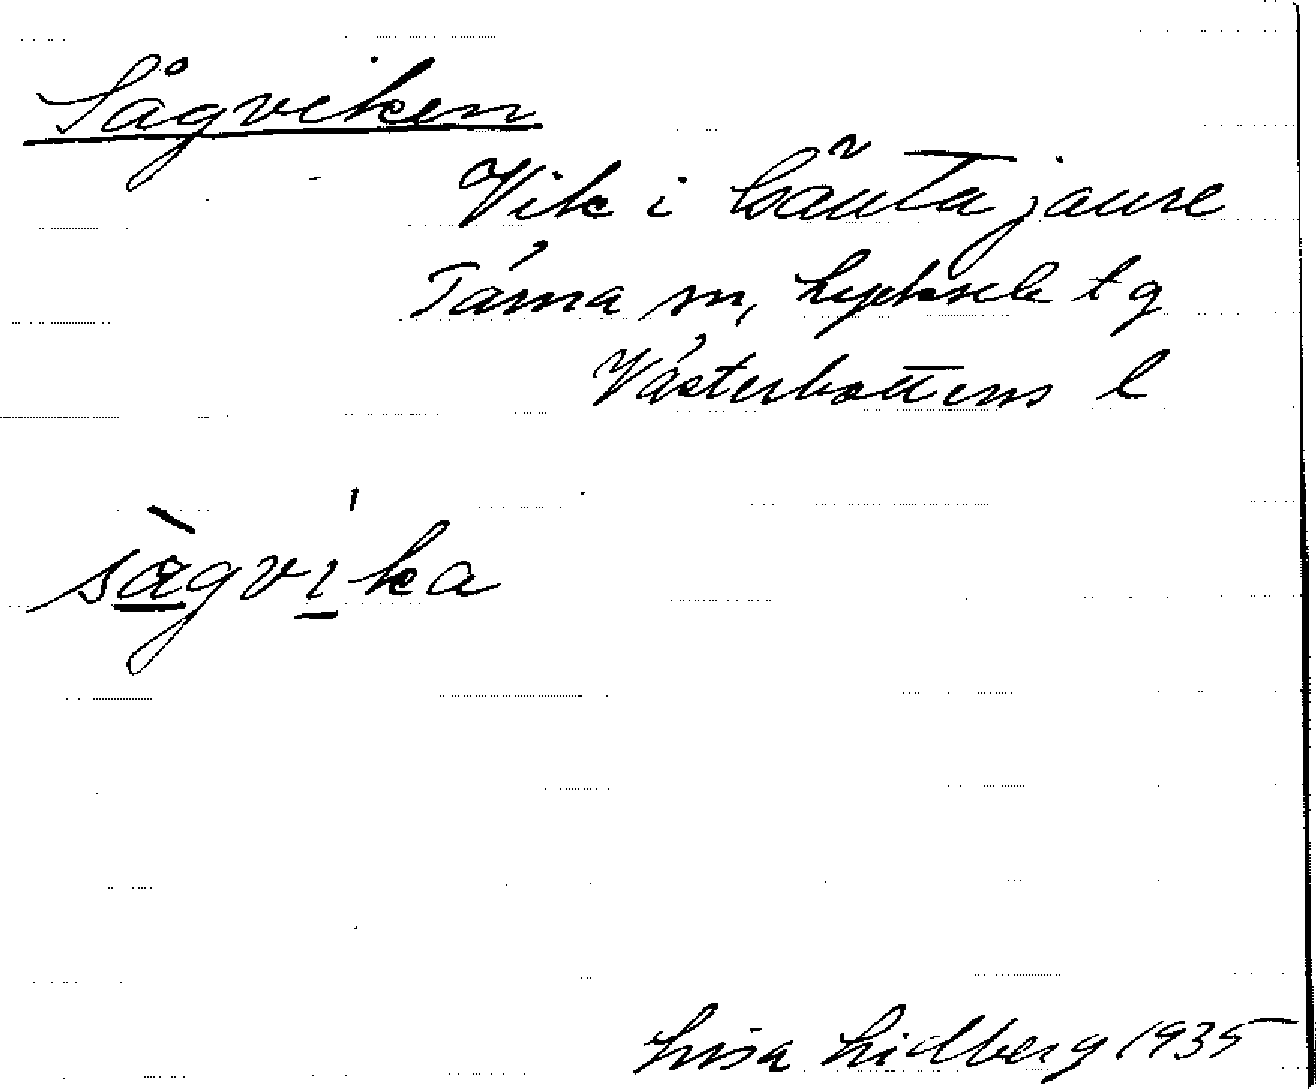 Sågviken
Vik i Gäutajaure
Tärna sn, Lycksele tg
Västerbottens l
sàgvíka
Lisa Lidberg 1935